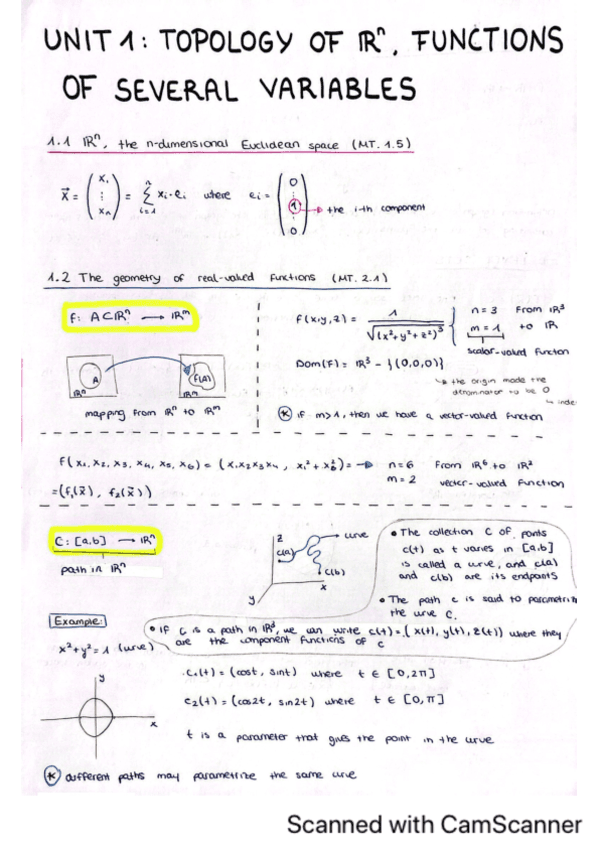 UNIT 1: TOPOLOGY OF ℝⁿ, FUNCTIONS
OF SEVERAL VARIABLES
1.1 ℝⁿ, the n-dimensional Euclidean space (MT. 1.5)
x⃗ = (x₁ ⋮ xₙ) = Σᵢ₌₁ⁿ xᵢ·eᵢ where eᵢ = (0 ⋮ 1 ⋮ 0) → the i-th component
1.2 The geometry of real-valued functions (MT. 2.1)
f: A⊂ℝⁿ → ℝᵐ
A
ℝⁿ
f(A)
ℝᵐ
mapping from ℝⁿ to ℝᵐ
f(x,y,z) = 1/√(x²+y²+z²)³ { n=3 from ℝ³
m=1 to ℝ
scalar-valued function
Dom(f) = ℝ³ - {(0,0,0)}
↳ the origin made the
denominator to be 0
↳ inde
* if m>1, then we have a vector-valued function
f(x₁, x₂, x₃, x₄, x₅, x₆) = (x₁x₂x₃x₄, x₁²+x₆²) = → n=6 From ℝ⁶ to ℝ²
m=2 vector-valued function
=(f₁(x⃗), f₂(x⃗))
C: [a,b] → ℝⁿ
path in ℝⁿ
z
curve
c(a)
c(b)
x
y
• The collection C of points
c(t) as t varies in [a,b]
is called a curve, and c(a)
and c(b) are its endpoints
• The path c is said to parametriz
the curve C.
• If c is a path in ℝ³, we can write c(t)=(x(t), y(t), z(t)) where they
are the component functions of c
Example:
x²+y²=1 (curve)
y
x
c₁(t)=(cost, sint) where t ∈ [0,2π]
c₂(t)=(cos2t, sin2t) where t ∈ [0,π]
t is a parameter that gives the point in the curve
* different paths may parametrize the same curve
Scanned with CamScanner